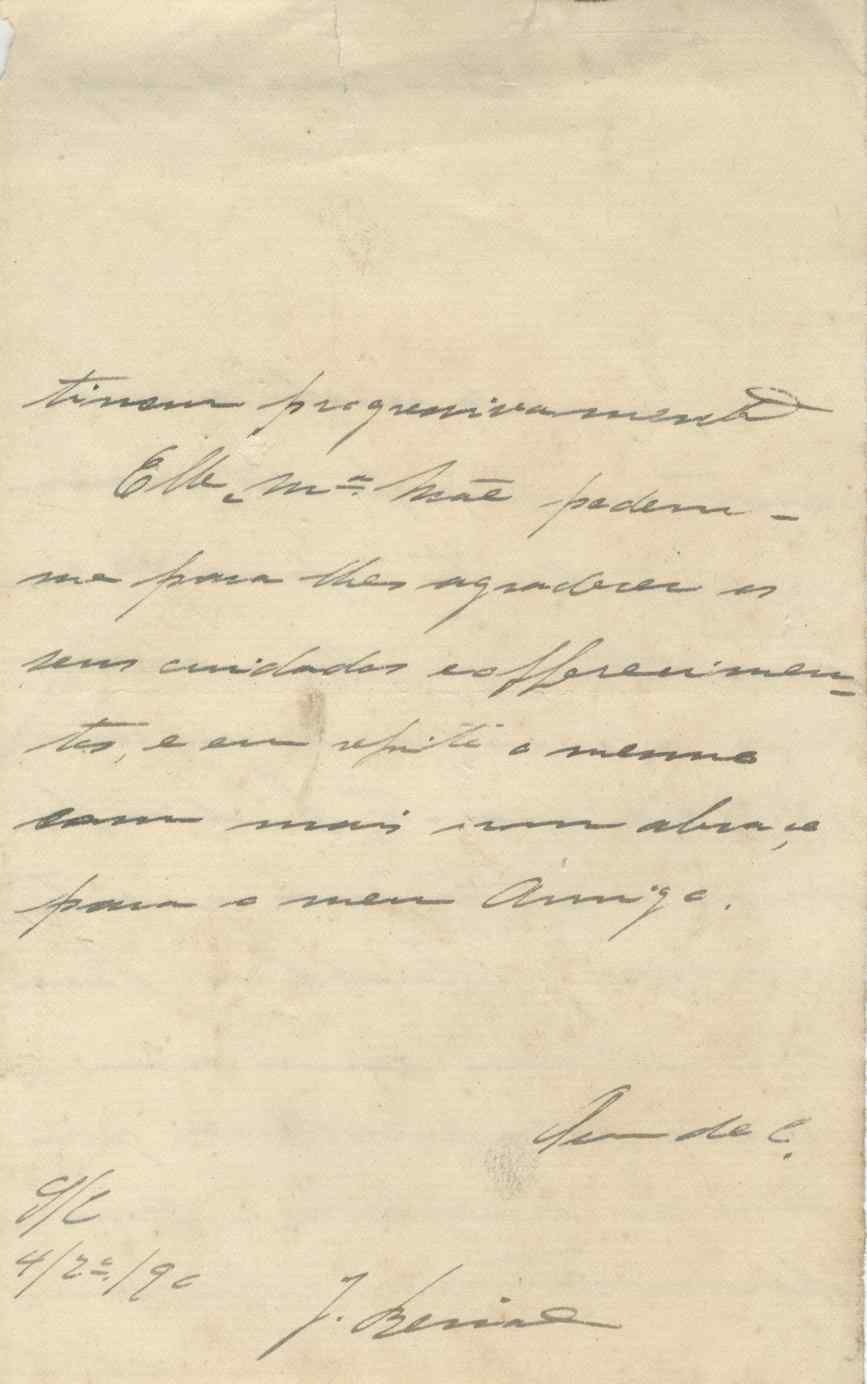 tinua progressivamente
Elle, m.ª Mãe pedem-
me para lhes agradecer os
seus cuidados e offerecimen-
tos, e eu repito o mesmo
com mais um abraço
para o meu Amigo.
de C.
S/C
4/2.º/90
J.